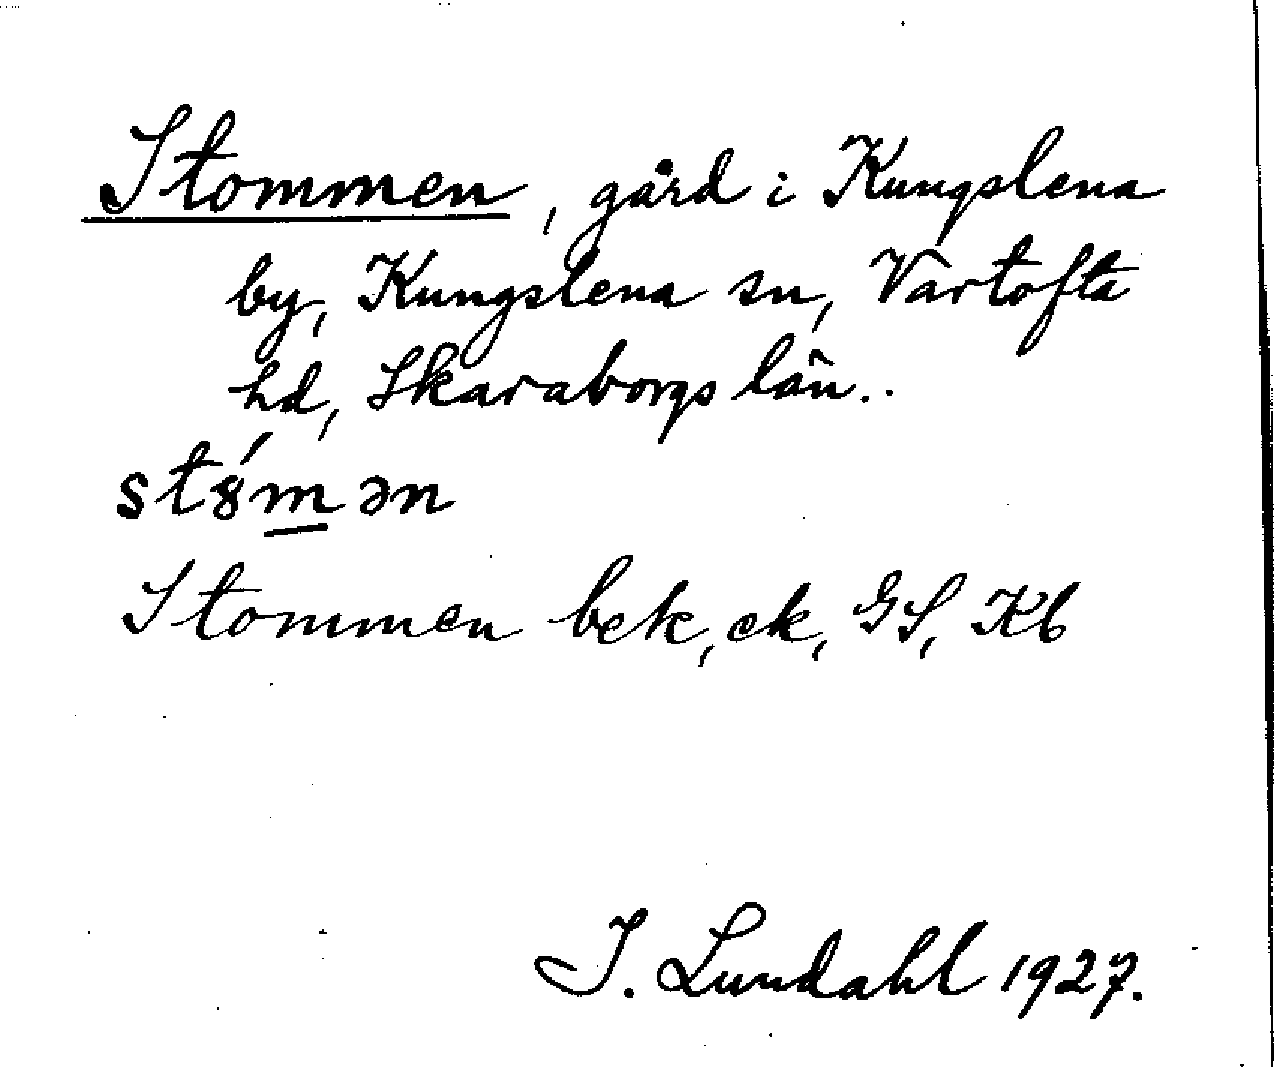 Stommen, gård i Kungslena
by, Kungslena sn, Vartofta
hd, Skaraborgs län..
st8́mən
Stommen bek, ek, GS, Kb
I. Lundahl 1927.